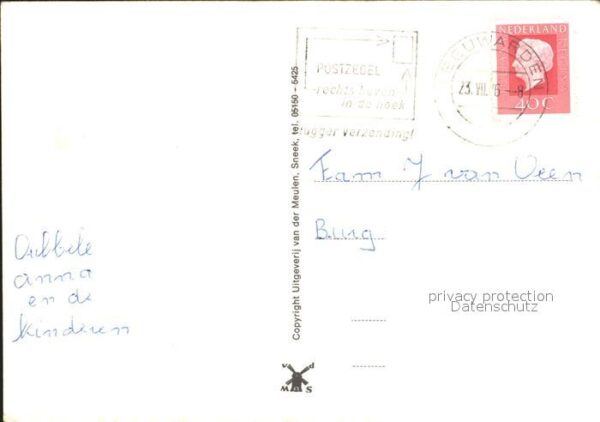 NEDERLAND
40C
LEEUWARDEN
23.VII.76-8
POSTZEGEL
rechts boven
in de hoek
vlugger verzending!
Fam J van Veen
Burg
privacy protection
Datenschutz
Dubbele
anna
en de
kinderen
Copyright Uitgeverij van der Meulen, Sneek, tel. 05150 - 5425
v d
W M S